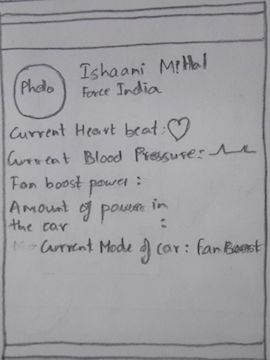 Photo
Ishaani Mittal
Force India
Current Heart beat:
Current Blood Pressure:
Fan boost power :
Amount of power in
the car :
Current Mode of car : Fan Boost